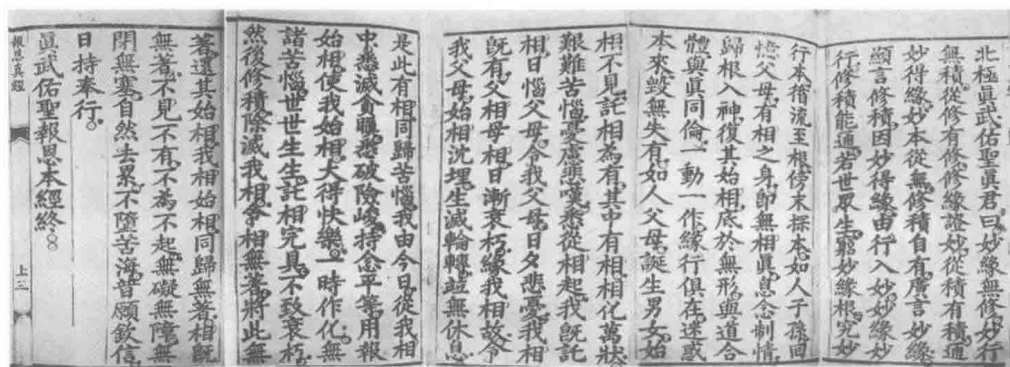 北極眞武佑聖眞君曰妙緣無修妙行
無積從修有修修緣證妙從積有積通
妙得緣妙本從無修積自有廣言妙緣
顯言修積因妙得緣由行入妙妙緣妙
行修積能通若世衆生窮妙緣根究妙
行本循流至根傍末探本如人子孫回
憶父母有相之身即無相眞息念制情
歸根入神復其始相底於無形與道合
體與眞同倫一動一作緣行俱在迷惑
本來毀無失有如人父母誕生男女始
相不見託相為有其中有相相化萬狀
艱難苦惱憂慮悲嘆悉從相起我旣託
相日惱父母令我父母日夕悲憂我相
旣有父相母相日漸衰朽緣我相故令
我父母始相沈埋生滅輪轉竝無休息
是此有相同歸苦惱我由今日從我相
中悉滅貪瞋悉破險峻持念平等用報
始相使我始相大得快樂一時作化無
諸苦惱世世生生託相完具不致衰朽
然後修積除滅我相令相無著將此無
著還其始相我相始相同歸無著相旣
無著不見不有不為不起無礙無障無
閉無塞自然去累不墮苦海普願欽信
日持奉行。
眞武佑聖報恩本經終。。
報恩眞經 上三